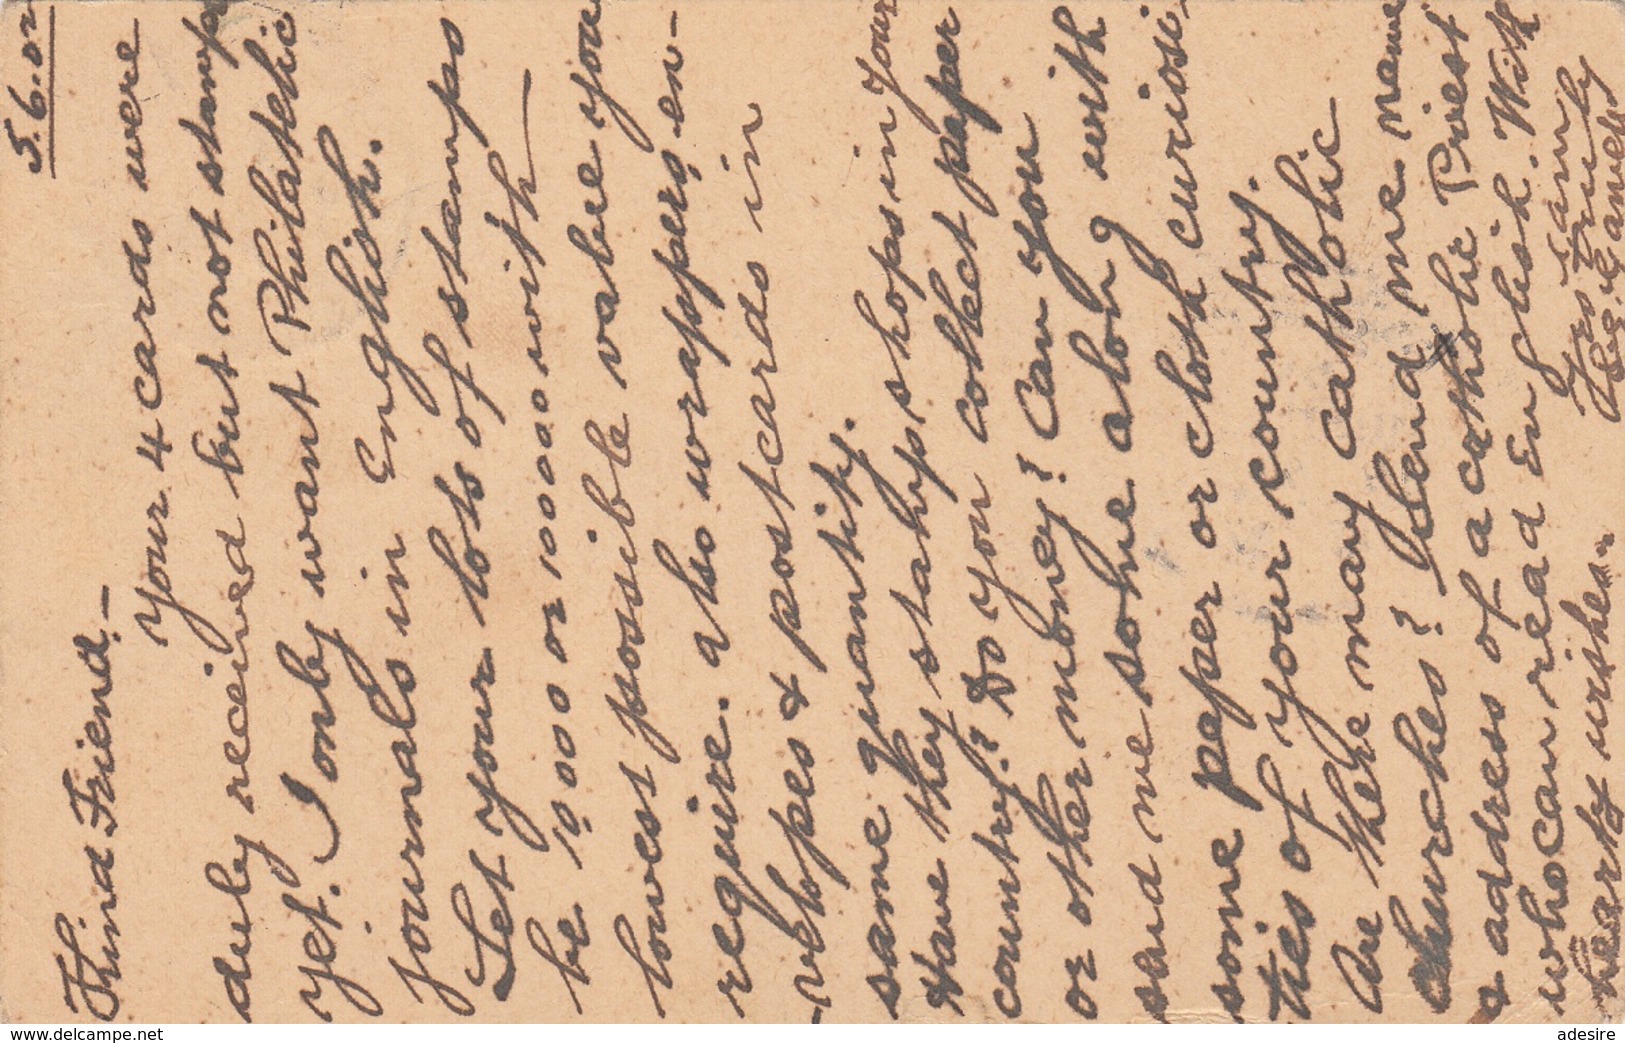 5.6.02
Kind Friend, –
your 4 cards were
duly received but not stamps
yet. I only want Philatelic
journals in English.
Let your lots of stamps
be 1,000 or 10000 with
lowest possible value you
require. also wrappers, en-
velopes & postcards in
same quantity.
Have they stamp, shops in your
country? Do you collect paper
or other money? Can you
send me some along with
some paper or cloth curiosi-
ties of your country.
Are there many catholic
churches? Send me name
& address of a catholic Priest
who can read English. With
hearty wishes
I am
yrs truly
delcampe.net
adesire